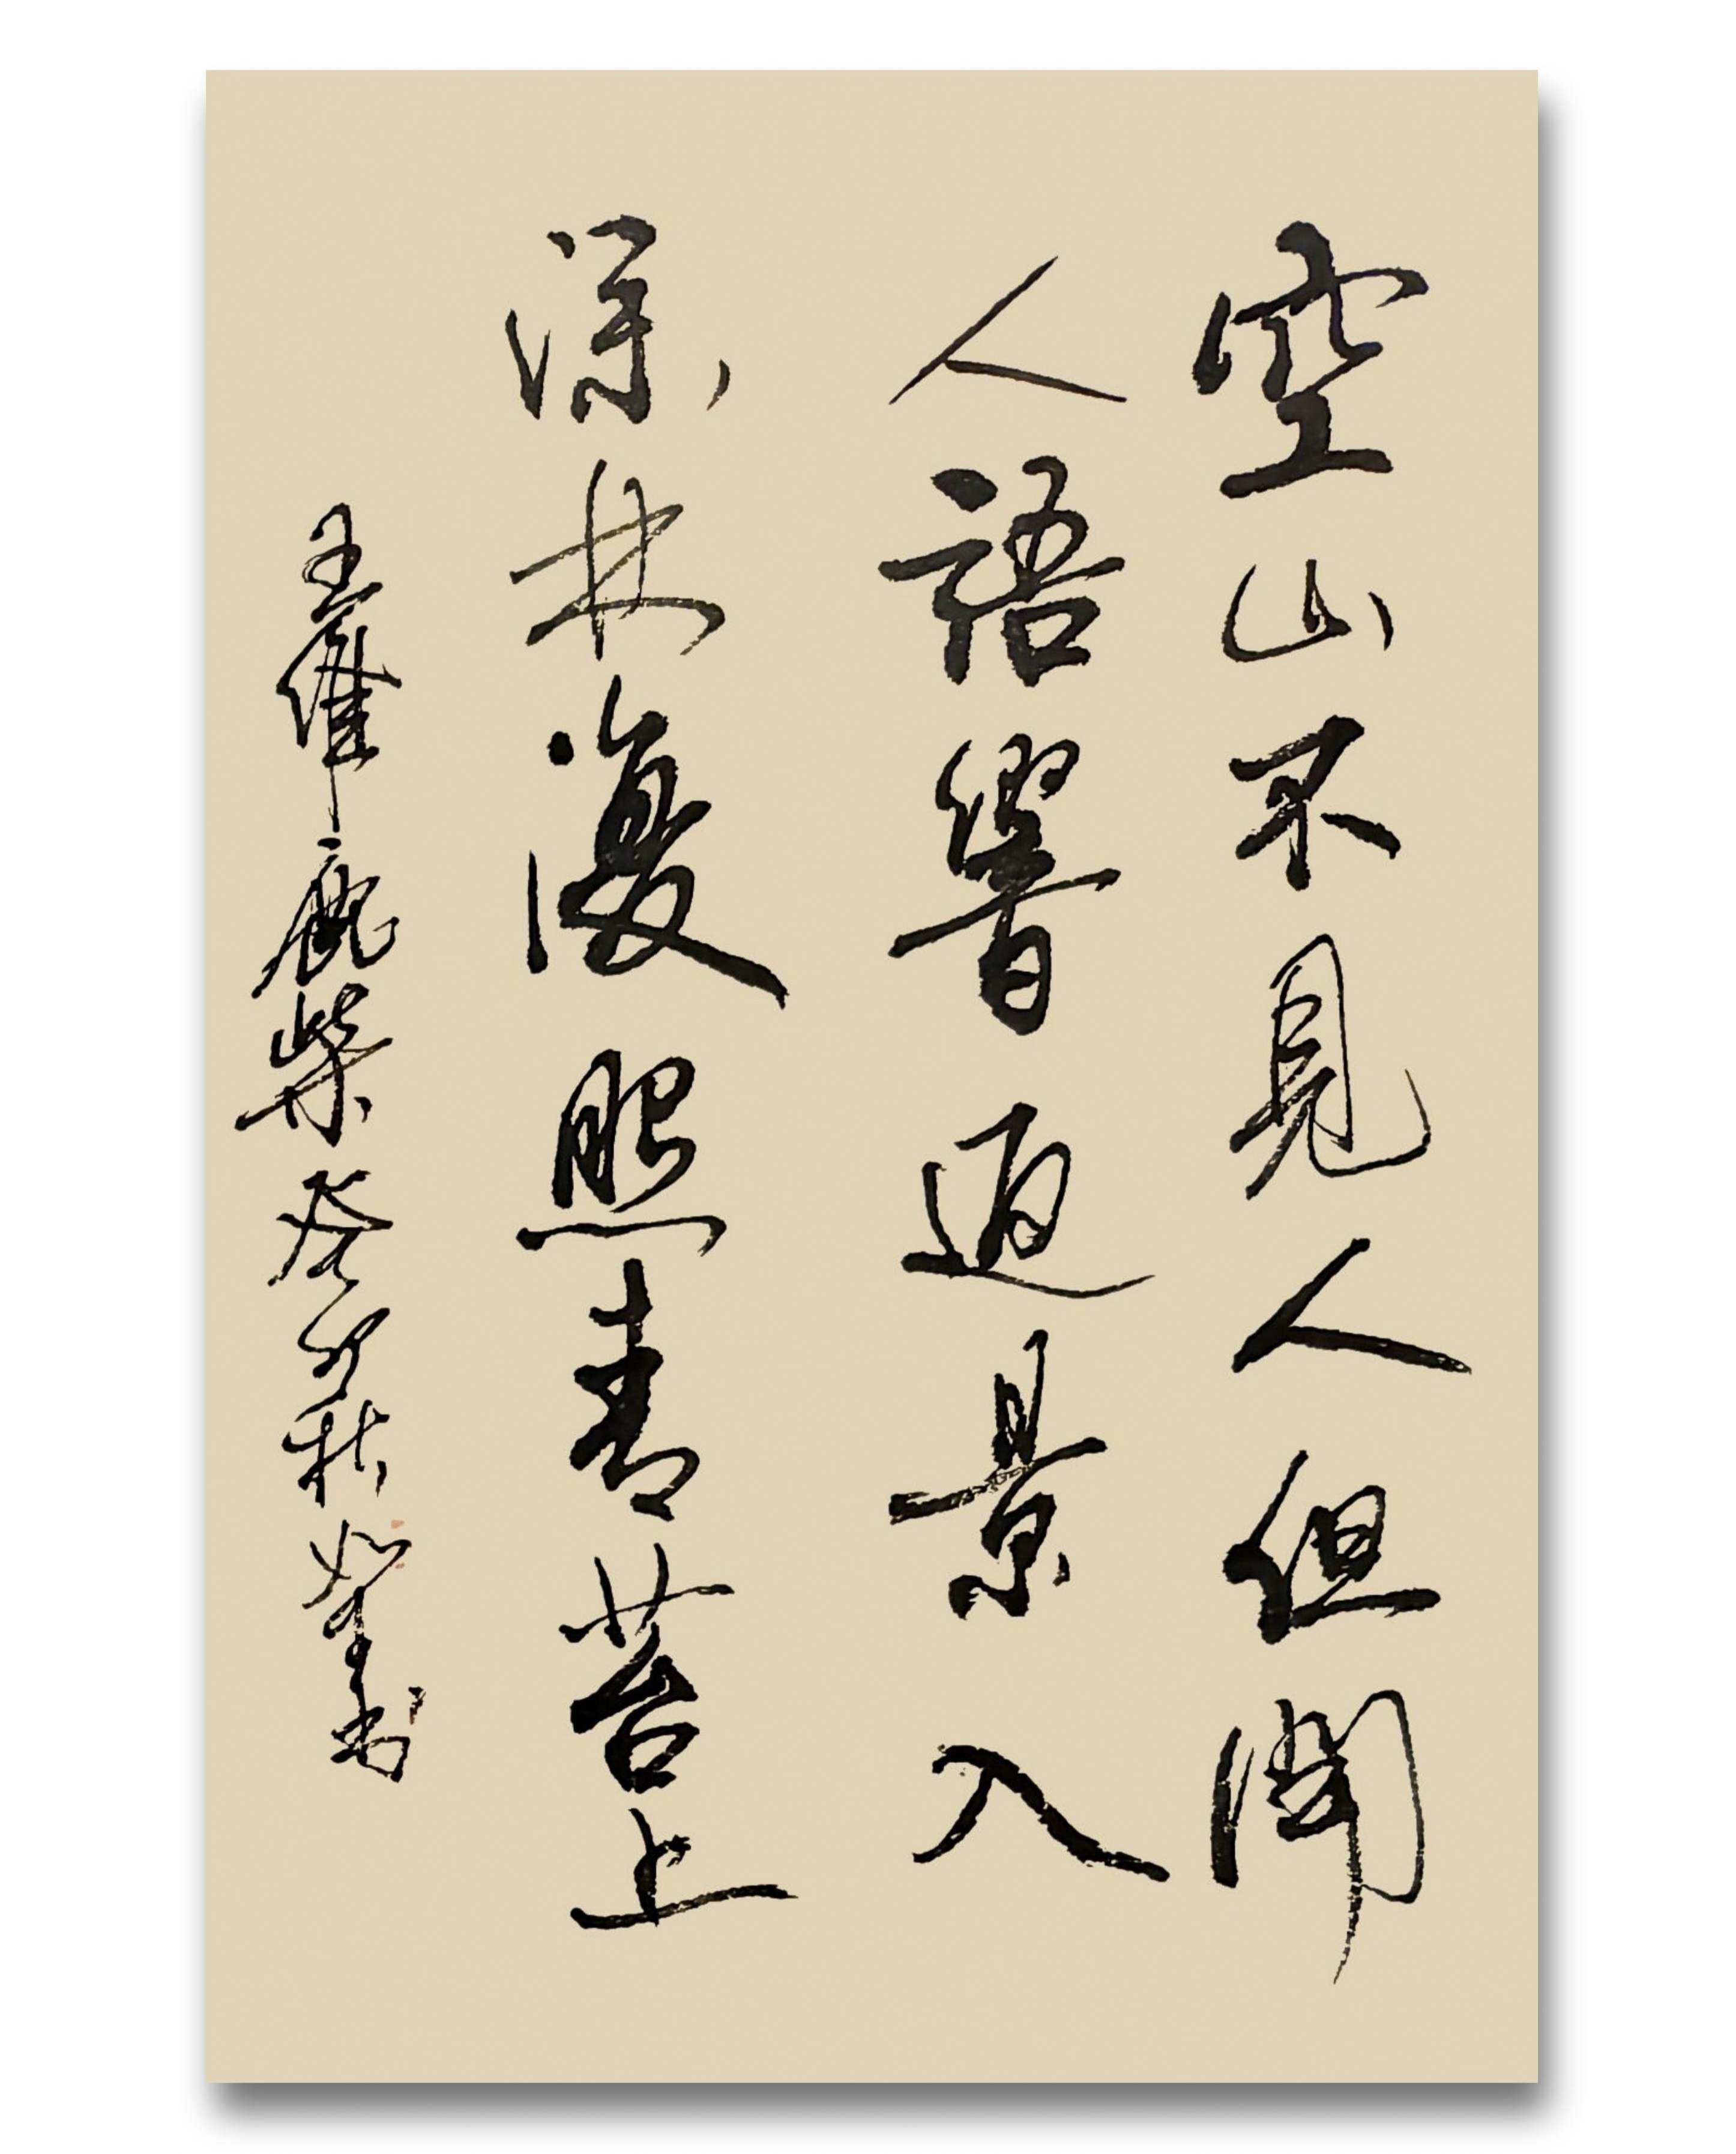 空山不見人但聞
人語響返景入
深林復照青苔上
王維鹿柴癸卯秋书